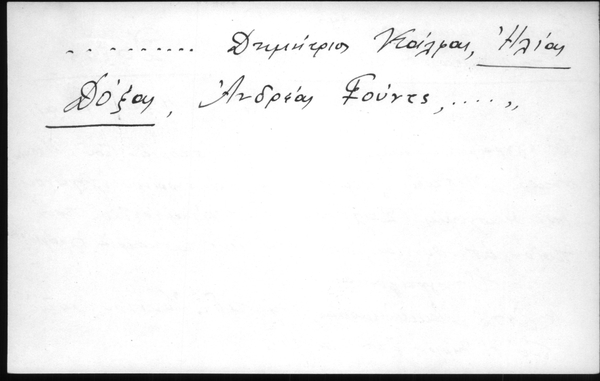 ......... Δημήτριος Κάλμας, Ἠλίας
Δόξας, Ἀνδρέας Γούντς, ....,,